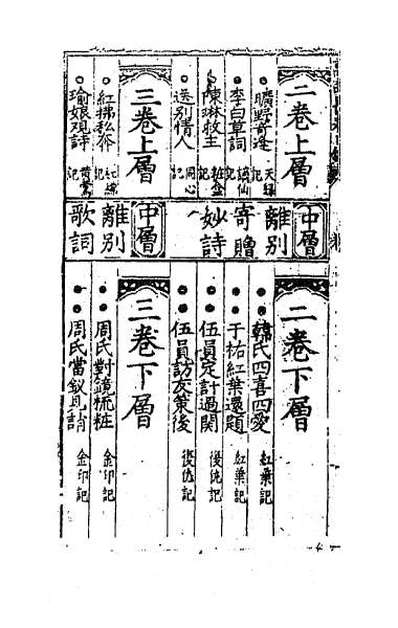 二卷上層
曠野奇逢
李白草詞
陳琳救主 粧盒記
送別情人 同心記
三卷上層
紅拂私奔
瑜娘观詩
中層
離別
寄贈
妙詩
中層
離別
歌詞
二卷下層
韓氏四喜四愛 紅葉記
于祐紅葉還題 紅葉記
伍員定計過關 復仇記
伍員訪友策後 復仇記
三卷下層
周氏對鏡梳粧 金印記
周氏當釵見誚 金印記